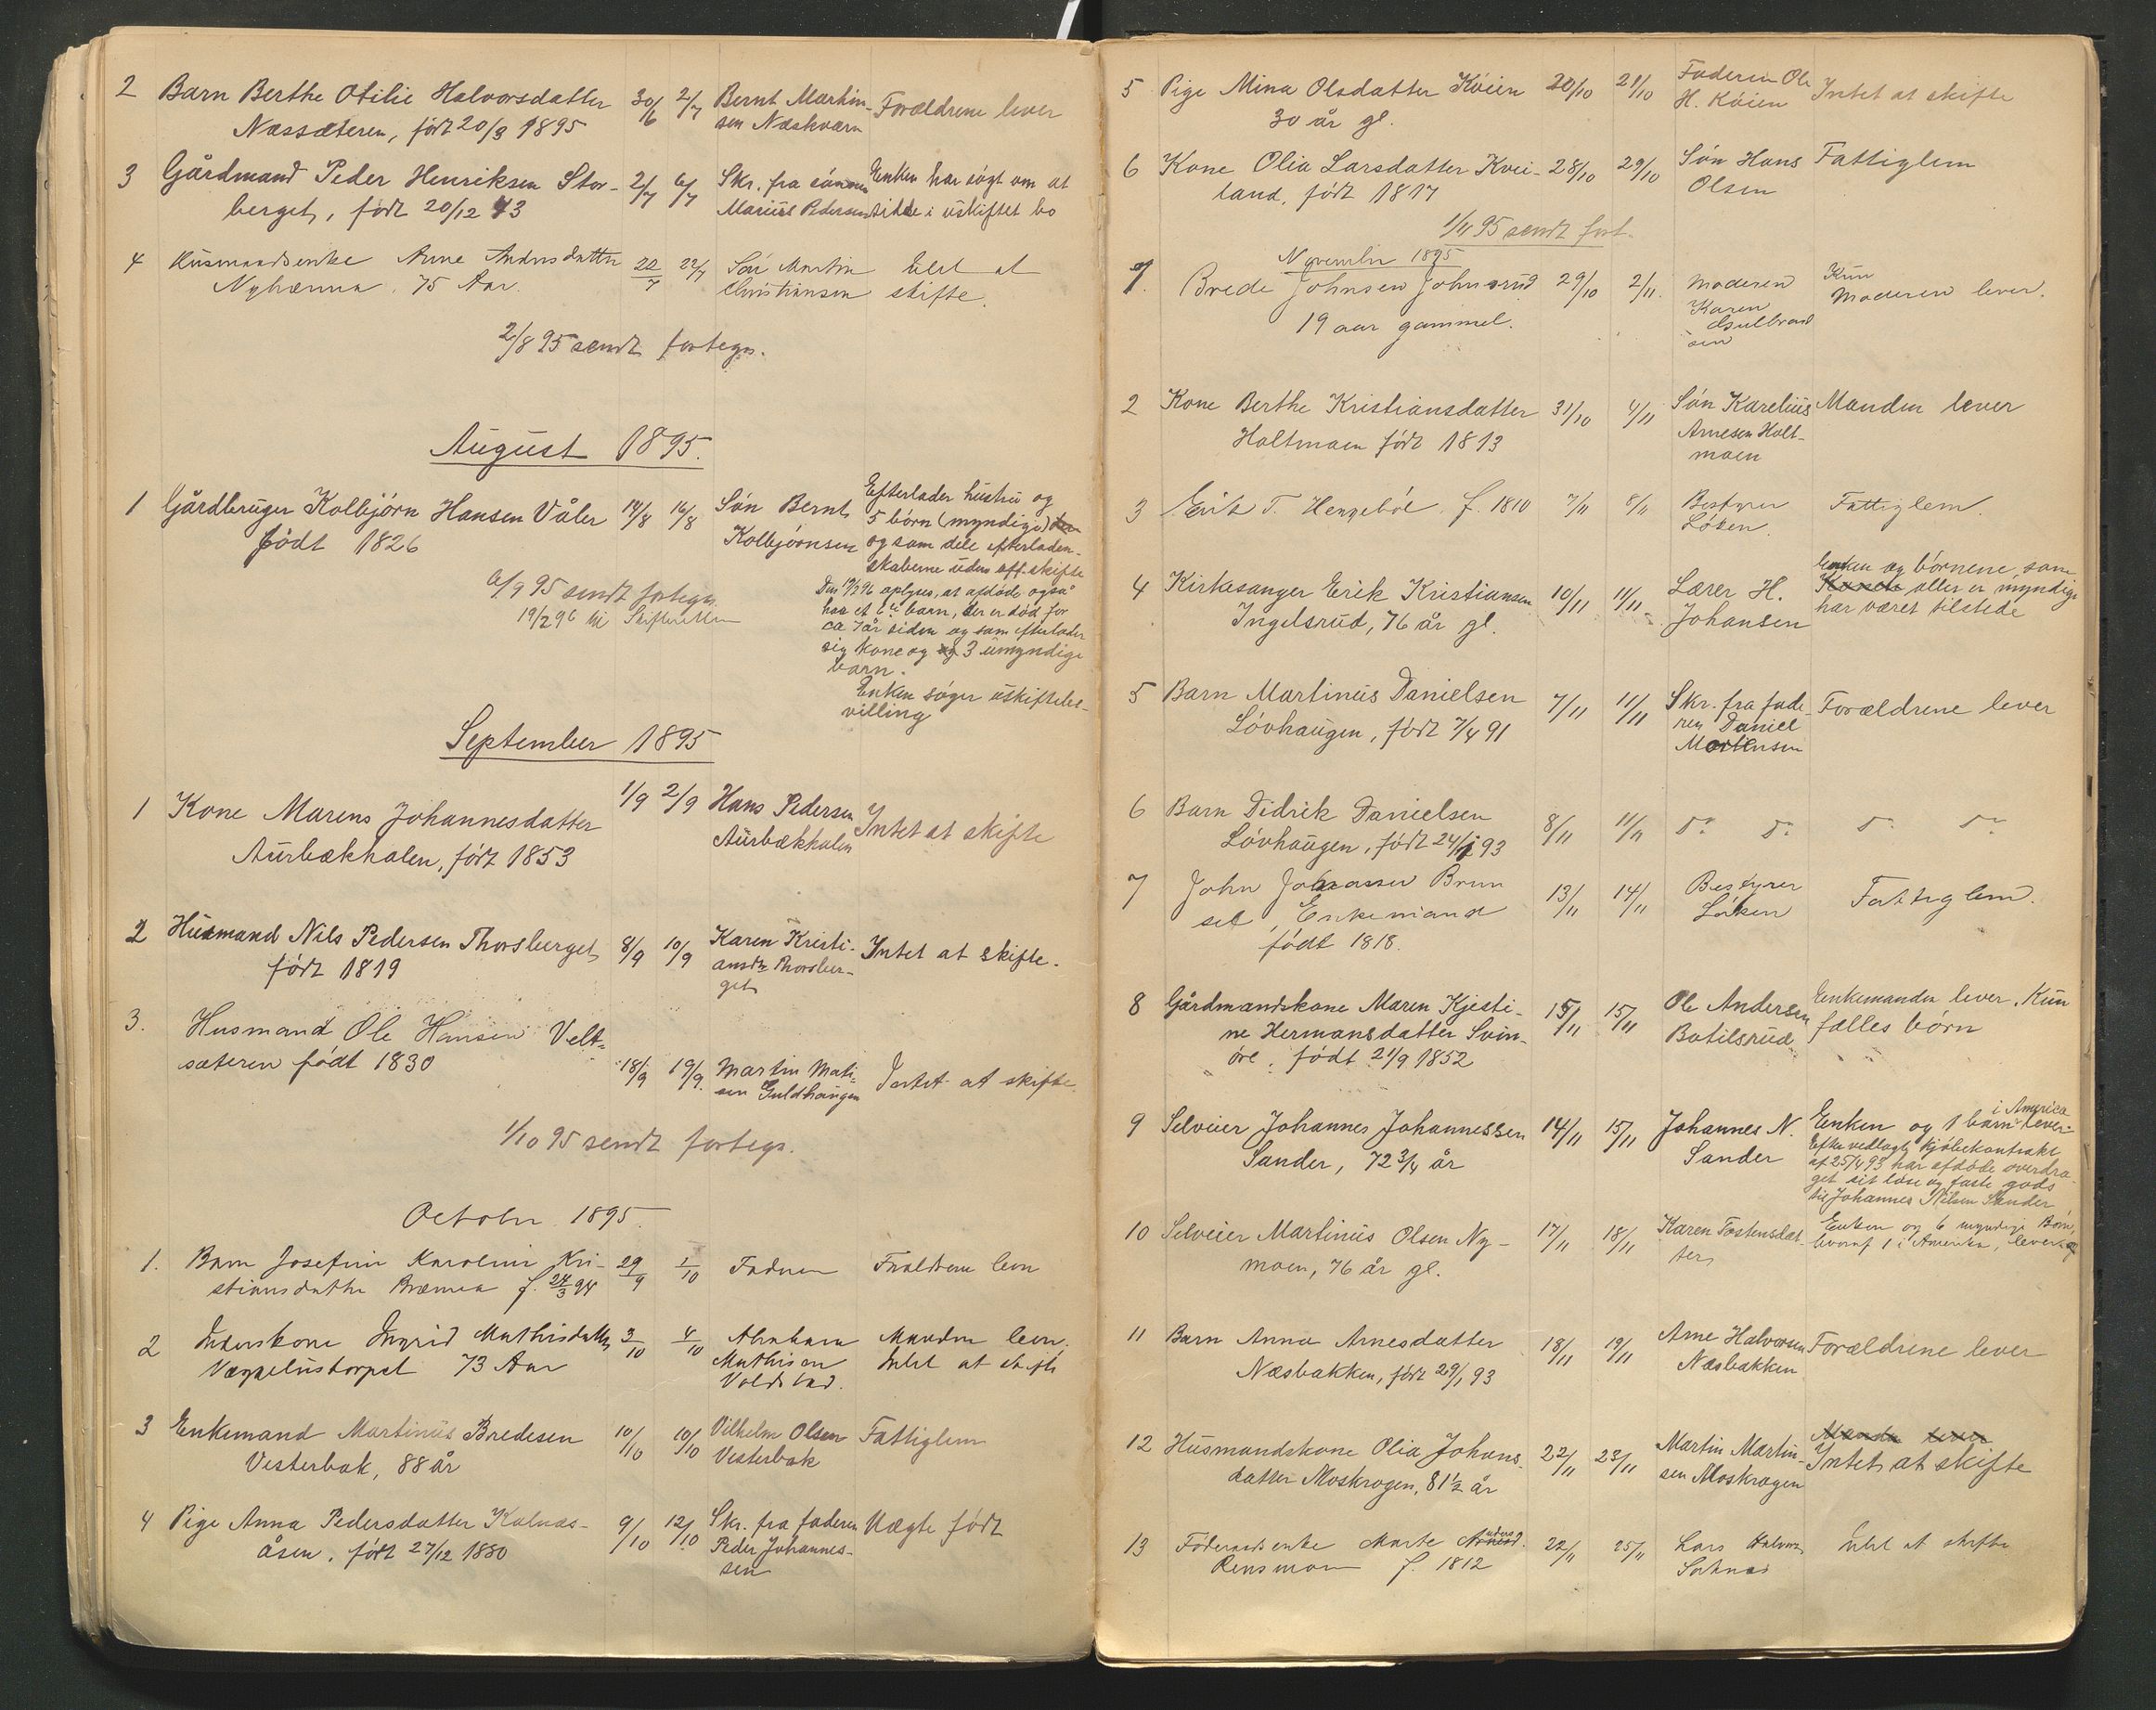 2 Barn Berthe Otilie Halvorsdatter 30/6 2/7 Bernt Martin- Forældrene lever
Næssæteren, født 20/3 1895 sen Næskværn
3 Gårdmand Peder Henriksen Stor- 2/7 6/7 Skr. fra sønnen Enken har søgt om at
berget, født 20/12 43 Marius Pedersen sidde i uskiftet bo
4 Husmandsenke Anne Andersdatter 20/7 22/7 Søn Martin Intet at
75 Aar. Christiansen skifte.
2/8 95 sendt fortegn.
August 1895.
1 Gårdbruger Kolbjørn Hansen Våler 14/8 16/8 Søn Bernt Efterlader hustru og
født 1826 Kolbjørnsen 5 børn (myndige)
og som dele efterladen-
skaberne uden off. skifte
6/9 95 sendt fortegn.
19/2 96 til Skifteretten
Den 19/2 96 oplyses, at afdøde også
har et barn, der er død for
ca 7 år siden og som efterlader
sig kone og 3 umyndige
barn.
Enken søger uskiftebe-
villing
September 1895
1 Kone Marens Johannesdatter 1/9 2/9 Hans Pedersen Intet at skifte
Aurbækhalen, født 1853 Aurbækhalen
2 Husmand Nils Pedersen Thorsberget 8/9 10/9 Karen Kristi- Intet at skifte.
født 1819 ansdtr Thorsber-
get
3. Husmand Ole Hansen Velt-
sæteren født 1830 18/9 19/9. Martin Mati- Intet at skifte.
sen Guldhaugen
1/10 95 sendt fortegn.
October 1895.
1. Barn Josefine Karoline Kri- 29/9 1/10 Faderen Forældrene lever
stiansdatter Bræmea f. 24/3 94
2 Ingrid Mathisdatter 3/10 4/10 Abraham Manden lever.
73 Aar Mathisen Intet at skifte
Voldstad.
3 Enkemand Martinus Bredesen 10/10 10/10 Vilhelm Olsen Fattiglem
Vesterbak, 88 år Vesterbak
4 Pige Anna Pedersdatter Kalnæs- 9/10 12/10 Skr. fra faderen Uægte født
åsen, født 27/12 1880 Peder Johannes-
sen
5 Pige Mina Olsdatter Køien 20/10 21/10 Faderen Ole Intet at skifte
30 år gl. H. Køien
6 Kone Olia Larsdatter Kvei- 28/10 29/10 Søn Hans Fattiglem
land, født 1817 Olsen
1/11 95 sendt fort.
November 1895
1. Brede Johnsen Johnsrud 29/10 2/11. Moderen Kun
19 aar gammel. Karen Moderen lever.
Gulbrand
sen
2 Kone Berthe Kristiansdatter 31/10 4/11 Søn Karelius Manden lever
Holtmoen født 1813 Arnesen Holt-
moen
3 Erik T. Hengebøl f. 1810 7/11 8/11 Bestyrer Fattiglem.
Løken.
4 Kirkesanger Erik Kristiansen 10/11 11/11 Lærer H. Enken og børnene, som
Ingelsrud, 76 år gl. Johansen alle er myndige
har været tilstede
5 Barn Martinus Danielsen 7/11 11/11 Skr. fra fade- Forældrene lever
Løvhaugen, født 7/4 91 ren Daniel
Mortensen
6 Barn Didrik Danielsen 8/11 11/11 Do Do Do Do
Løvhaugen, født 24/12 93
7 John Johnassen Brun 13/11 14/11 Bestyrer Fattiglem.
set, Enkemand Løken
født 1818.
8 Gårdmandskone Maren Kjesti- 15/11 15/11 Ole Andersen Enkemanden lever. Kun
ne Hermansdatter Svin- Botilsrud fælles børn
øre, født 21/9 1852
9 Selveier Johannes Johannessen 14/11 15/11 Johannes N. Enken og 1 barn i America lever
Sander, 72 3/4 år Sander Efter vedlagte kjøbekontrakt
af 25/4 93 har afdøde overdra-
get sit løse og faste gods
til Johannes Nilsen Sander
10 Selveier Martinus Olsen Ny- 17/11 18/11 Karen Tostensdat- Enken og 6 myndige Børn,
moen, 76 år gl. ter hvoraf 1 i Amerika, lever
11 Barn Anna Arnesdatter 18/11 19/11 Arne Halvorsen Forældrene lever
Næsbakken, født 29/1 93 Næsbakken
12 Husmandskone Olia Johans- 22/11 23/11 Martin Martin- Manden lever
datter Moskrogen, 81 1/2 år sen Moskrogen Intet at skifte
13 Føderaadsenke Marte 22/11 25/11 Lars Halvors. Intet at skifte
Rensmoen f. 1812